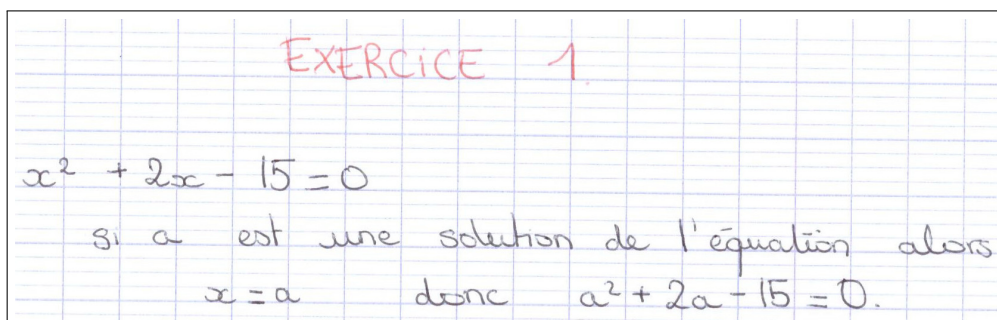 EXERCICE 1.
x² + 2x - 15 = 0
si a est une solution de l'équation alors
x = a donc a² + 2a - 15 = 0.